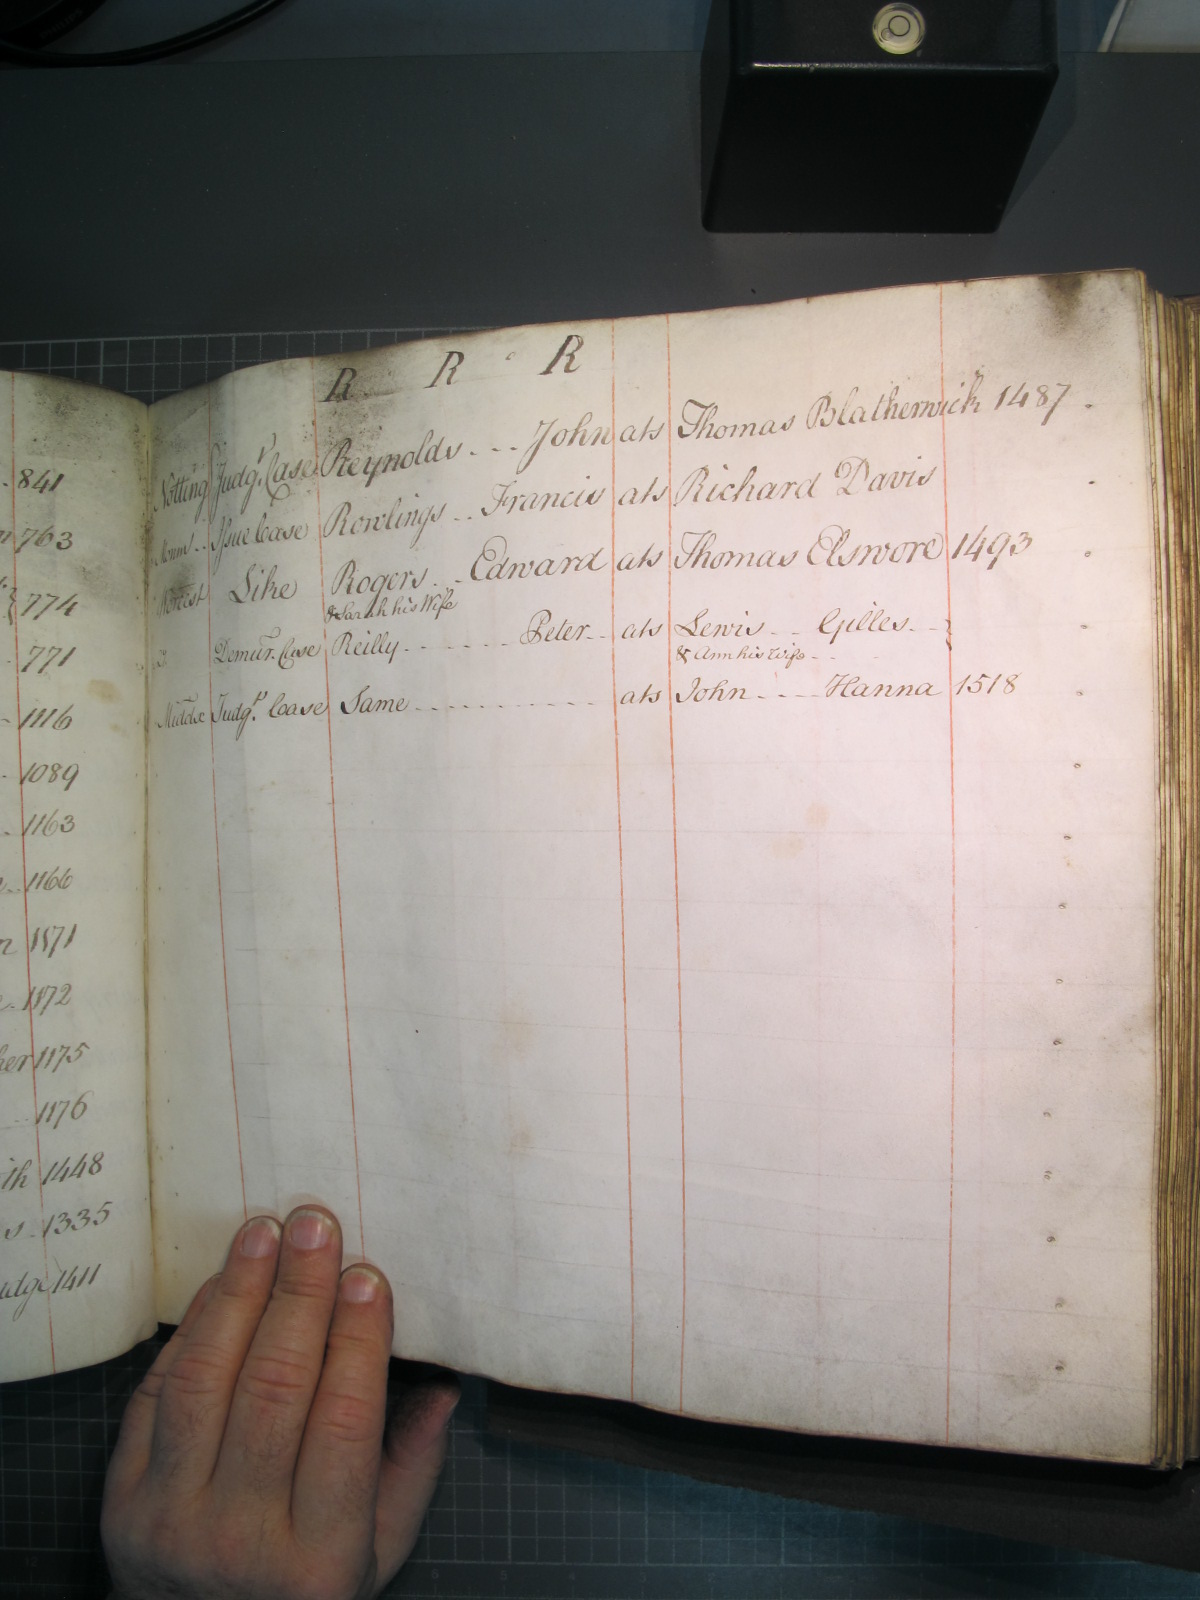 R R R
841
763
774
771
1116
1089
1163
1166
1171
1172
1175
1176
1448
1335
1411
Notting Judgt. Case Reynolds ... John ats Thomas Blatherwick 1487
Monm. .. Issue Case Rowlings .. Francis ats Richard Davis
Like Rogers .. Edward ats Thomas Elswore 1493
& Sarah his Wife
Demurr. Case Reilly ....... Peter .. ats Lewis .. Gilles .. }
& Ann his Wife ..
Middx Judgt. Case Same .......... ats John .... Hanna 1518